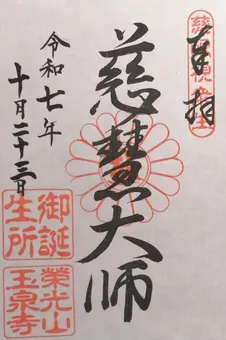 奉拝
慈慧大師
令和七年
十月二十三日
御誕
生所
榮光山
玉泉寺